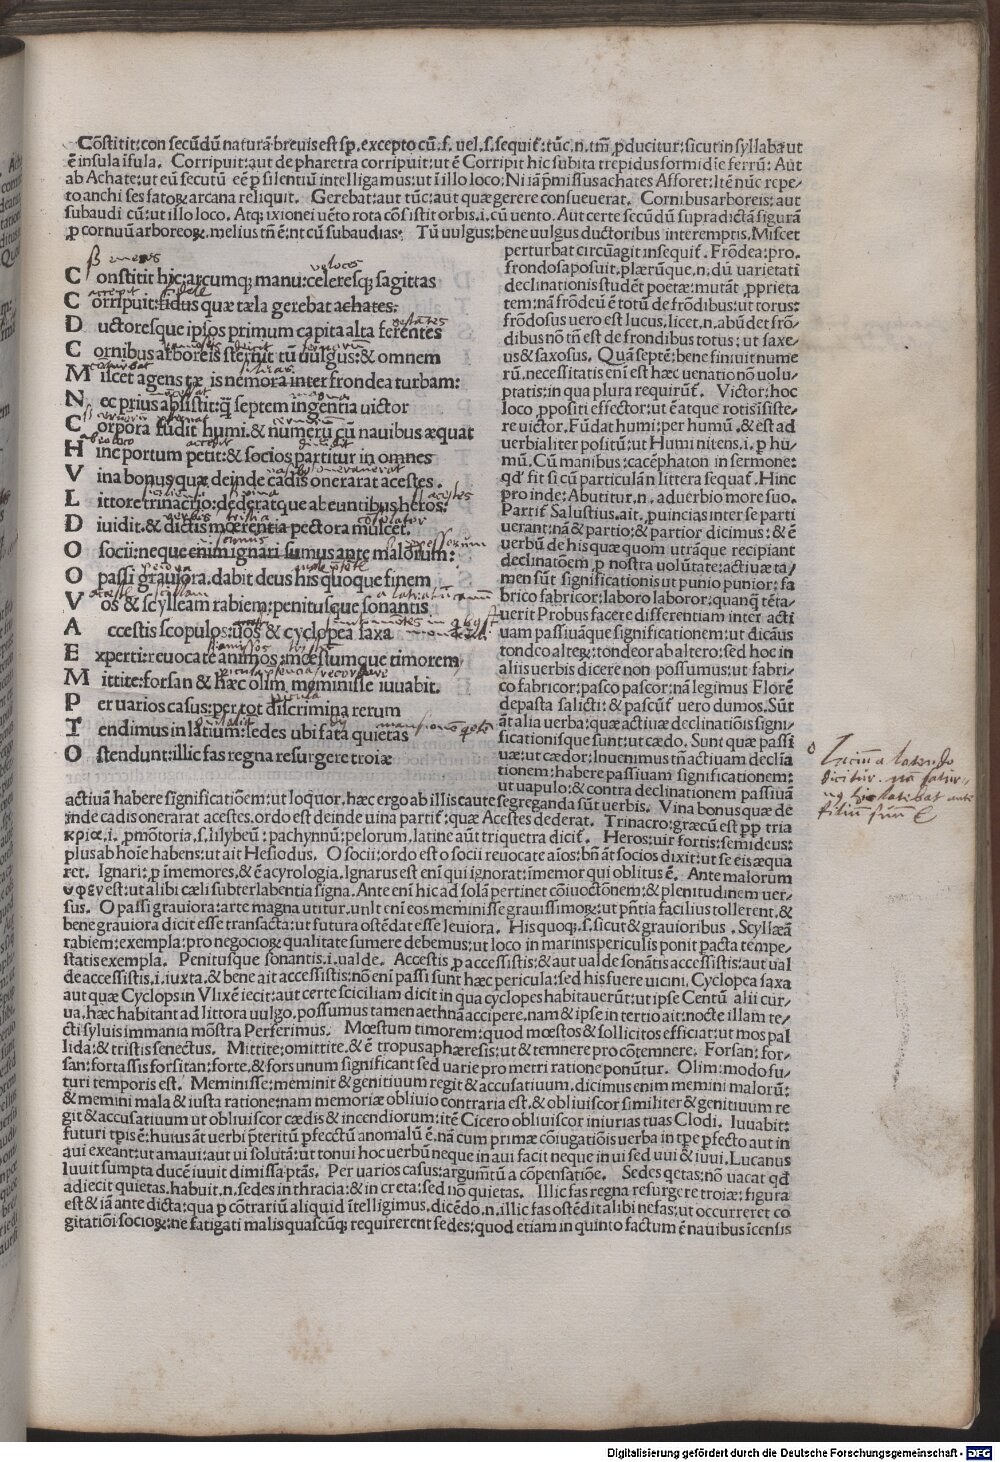 Cōstitit: con secūdū naturā breuis est ſp. excepto cū. f. uel. s. sequit̄: tūc. n. tm̄ ꝓducitur: sicut in syllaba ut
ē insula īfula. Corripuit: aut de pharetra corripuit: ut ē Corripit hic subita trepidus formidīe ferrū: Aut
ab Achate: ut eū secutū eē ꝑ silentiū intelligamus: ut ī illo loco: Ni iā p̄missus achates Afforet: Itē nūc repe⸗
to anchises fatoꝝ arcana reliquit. Gerebat: aut tūc: aut quæ gerere consueuerat. Cornibus arboreis: aut
subaudi cū: ut illo loco. Atq; ixionei uēto rota cōstitit orbis. i. cū uento. Aut certe secūdū supradictā figurā
ꝓ cornuū arboreoꝝ. melius tn̄ ē: nt cū subaudias. Tū uulgus: bene uulgus ductoribus interemptis. Miscet
C onstitit hic: arcumq; manu: celeresq; sagittas
C orripuit: fidus quæ tæla gerebat achates.
D uctoresque ipsos primum capita alta ferentes
C ornibus arboreis sternit tū uulgus: & omnem
M iscet agens tæ is nemora inter frondea turbam:
N ec prius absistit: q̄ septem ingentia uictor
C orpora fudit humi. & numerū cū nauibus æquat
H inc portum petit: & socios partitur in omnes
V ina bonus quæ deinde cadis onerarat acestes.
L ittore trinacrio: dederatque abeuntibus heros:
D iuidit. & dictis mœrentia pectora mulcet.
O socii: neque enim ignari sumus ante malorum:
O passi grauiora. dabit deus his quoque finem
V os & scylleam rabiem: penitusque sonantis
A ccestis scopulos: uos & cyclopea saxa
E xperti: reuocate animos: mœstumque timorem
M ittite: forsan & hæc olim meminisse iuuabit.
P er uarios casus: per tot discrimina rerum
T endimus in latium: sedes ubi fata quietas
O stendunt: illic fas regna resurgere troiæ
perturbat circūagit insequit̄. Frōdea: pro.
frondosa posuit. plærūque. n. dū uarietati
declinationis studēt poetæ: mutāt ꝓprieta
tem: nā frōdeū ē totū de frōdibus: ut torus:
frōdosus uero est lucus, licet. n. abūdet frō⸗
dibus nō tn̄ est de frondibus totus: ut saxe⸗
us & saxosus. Quā septē: bene finiuit nume
rū. necessitatis enī est hæc uenatio nō uolu⸗
ptatis: in qua plura requirūt̄. Victor: hoc
loco ꝓpositi effector: ut ē atque rotis isiste⸗
re uictor. Fūdat humi: per humū. & est ad
uerbialiter positū: ut Humi nitens. i. ꝑ hu⸗
mū. Cū manibus: cacēphaton in sermone:
qd̄ fit si cū particulā n littera sequat̄. Hinc
pro inde: Abutitur. n. aduerbio more suo.
Partit̄ Salustius. ait. ꝓuincias inter se parti
uerant: nā & partio: & partior dicimus: & ē
uerbū de his quæ quom utrāque recipiant
declinatōem ꝓ nostra uolūtate: actiuæ ta⸗
men sūt significationis ut punio punior: fa⸗
brico fabricor: laboro laboror: quanq̄ tēta⸗
uerit Probus facere differentiam inter acti
uam passiuāque significationem: ut dicāus
tondeo alteꝝ: tondeor ab altero: sed hoc in
aliis uerbis dicere non possumus: ut fabri⸗
co fabricor: pasco pascor: nā legimus Florē
depasta salicti: & pascūt̄ uero dumos. Sūt
āt alia uerba: quæ actiuæ declinatiōis signi⸗
ficationisque sunt: ut cædo. Sunt quæ passi
uæ: ut cædor: Inuenimus tn̄ actiuam decla
tionem: habere passiuam significationem:
ut uapulo: & contra declinationem passiuā
actiuā habere significatiōem: ut loquor. hæc ergo ab illis caute segreganda sūt uerbis. Vina bonus quæ de
inde cadis onerarat acestes. ordo est deinde uina partit̄: quæ Acestes dederat. Trinacro: græcū est ꝑp tria
κρια. i. ꝓmōtoria. s. lilybeū: pachynnū: pelorum. latine aūt triquetra dicit̄. Heros: uir fortis: semideus:
plus ab hoīe habens: ut ait Hesiodus. O socii: ordo est o socii reuocate aīos: bn̄ āt socios dixit: ut se eis æqua
ret. Ignari: ꝓ īmemores. & ē acyrologia. Ignarus est enī qui ignorat: īmemor qui oblitus ē. Ante malorum
υφεν est: ut alibi cæli subter labentia signa. Ante enī hic ad solā pertinet cōiuoctōnem: & plenitudinem uer⸗
sus. O passi grauiora: arte magna utitur. unlt enī eos meminisse grauissimoꝝ: ut pn̄tia facilius tollerent. &
bene grauiora dicit esse transacta: ut futura ostēdat esse leuiora. His quoq; . s. sicut & grauioribus. Scyllæā
rabiem: exempla: pro negocioꝝ qualitate sumere debemus: ut loco in marinis periculis ponit pacta tempe⸗
statis exempla. Penitusque sonantis. i. ualde. Accestis ꝓ accessistis: & aut ualde sonātis accessistis: aut ual
de accessistis. i. iuxta. & bene ait accessistis: nō enī passi sunt hæc pericula: sed his fuere uicini. Cyclopea saxa
aut quæ Cyclops in Vlixē iecit: aut certe sciciliam dicit in qua cyclopes habitauerūt: ut ipse Centū alii cur⸗
ua. hæc habitant ad littora uulgo. possumus tamen aethnā accipere. nam & ipse in tertio ait: nocte illam te⸗
cti syluis immania mōstra Perferimus. Mœstum timorem: quod mœstos & sollicitos efficiat: ut mos pal
lida: & tristis senectus. Mittite: omittite. & ē tropus aphæresis: ut & temnere pro cōtemnere. Forsan: for⸗
san: fortassis forsitan: forte. & fors unum significant sed uarie pro metri ratione ponūtur. Olim: modo fu⸗
turi temporis est. Meminisse: meminit & genitiuum regit & accusatiuum. dicimus enim memini malorū:
& memini mala & iusta ratione: nam memoriæ obliuio contraria est. & obliuiscor similiter & genitiuum re
git & accusatiuum ut obliuiscor cædis & incendiorum: itē Cicero obliuiscor iniurias tuas Clodi. Iuuabit:
futuri tp̄is ē: huius āt uerbi p̄teritū ꝑfecctū anomalū ē. nā cum primæ cōiugatiōis uerba in tp̄e ꝑfecto aut in
aui exeant: ut amaui: aut ui solutā: ut tonui hoc uerbū neque in aui facit neque in ui sed uui & iuui. Lucanus
Iuuit sumpta ducē iuuit dimissa ptās. Per uarios casus: argumt̄ū a cōpensatiōe. Sedes qetas: nō uacat qd̄
adiecit quietas. habuit. n. sedes in thracia: & in creta: sed nō quietas. Illic fas regna resurgere troiæ: figura
est & iā ante dicta: qua ꝑ cōtrariū aliquid ītelligimus. dicēdo. n. illic fas ostēdit alibi nefas: ut occurreret co
gitatiōi socioꝝ: ne fatigati malis quascūq; requirerent sedes: quod etiam in quinto factum ē nauibus īcensis
Digitalisierung gefördert durch die Deutsche Forschungsgemeinschaft - DFG